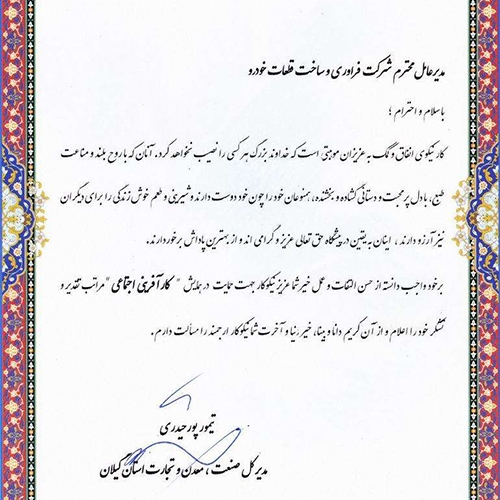 مدیرعامل محترم شرکت فرآوری و ساخت قطعات خودرو
با سلام و احترام ؛
کار نیکوی انفاق و کمک به عزیزان موهبتی است که خداوند بزرگ هر کسی را نصیب نخواهد کرد. آنان که با روح بلند و مناعت
طبع، با دل پر محبت و دستانی گشاده و بخشنده، همنوعان خود را چون خود دوست دارند و شیرینی و طعم خوش زندگی را برای دیگران
نیز آرزو دارند ، اینان به یقین در پیشگاه حق تعالی عزیز و گرامی اند و از بهترین پاداش برخوردارند.
برخود واجب دانسته از حسن التفات و عمل خیر شما عزیز نیکوکار جهت حمایت در همایش " کارآفرینی اجتماعی " مراتب تقدیر و
تشکر خود را اعلام و از آن کریم دانا و بینا، خیر دنیا و آخرت شما نیکوکار ارجمند را مسألت دارم.
تیمور پورحیدری
مدیر کل صنعت ، معدن و تجارت استان گیلان